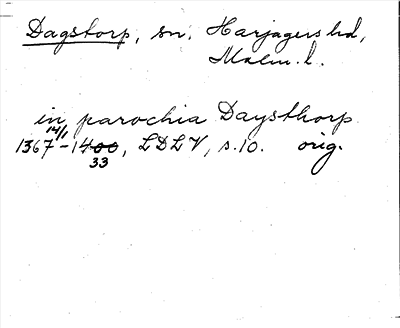 Dagstorp, sn, Harjagers hd,
Malm. l.
in parochia Daysthorp
14/1
1367-1400, LDLV, s. 10. orig.
33